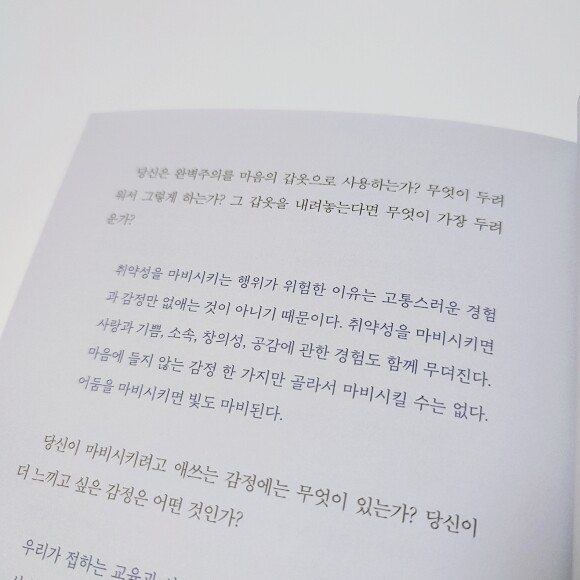 당신은 완벽주의를 마음의 갑옷으로 사용하는가? 무엇이 두려
워서 그렇게 하는가? 그 갑옷을 내려놓는다면 무엇이 가장 두려
운가?
취약성을 마비시키는 행위가 위험한 이유는 고통스러운 경험
과 감정만 없애는 것이 아니기 때문이다. 취약성을 마비시키면
사랑과 기쁨, 소속, 창의성, 공감에 관한 경험도 함께 무뎌진다.
마음에 들지 않는 감정 한 가지만 골라서 마비시킬 수는 없다.
어둠을 마비시키면 빛도 마비된다.
당신이 마비시키려고 애쓰는 감정에는 무엇이 있는가? 당신이
더 느끼고 싶은 감정은 어떤 것인가?
우리가 접하는 교육과